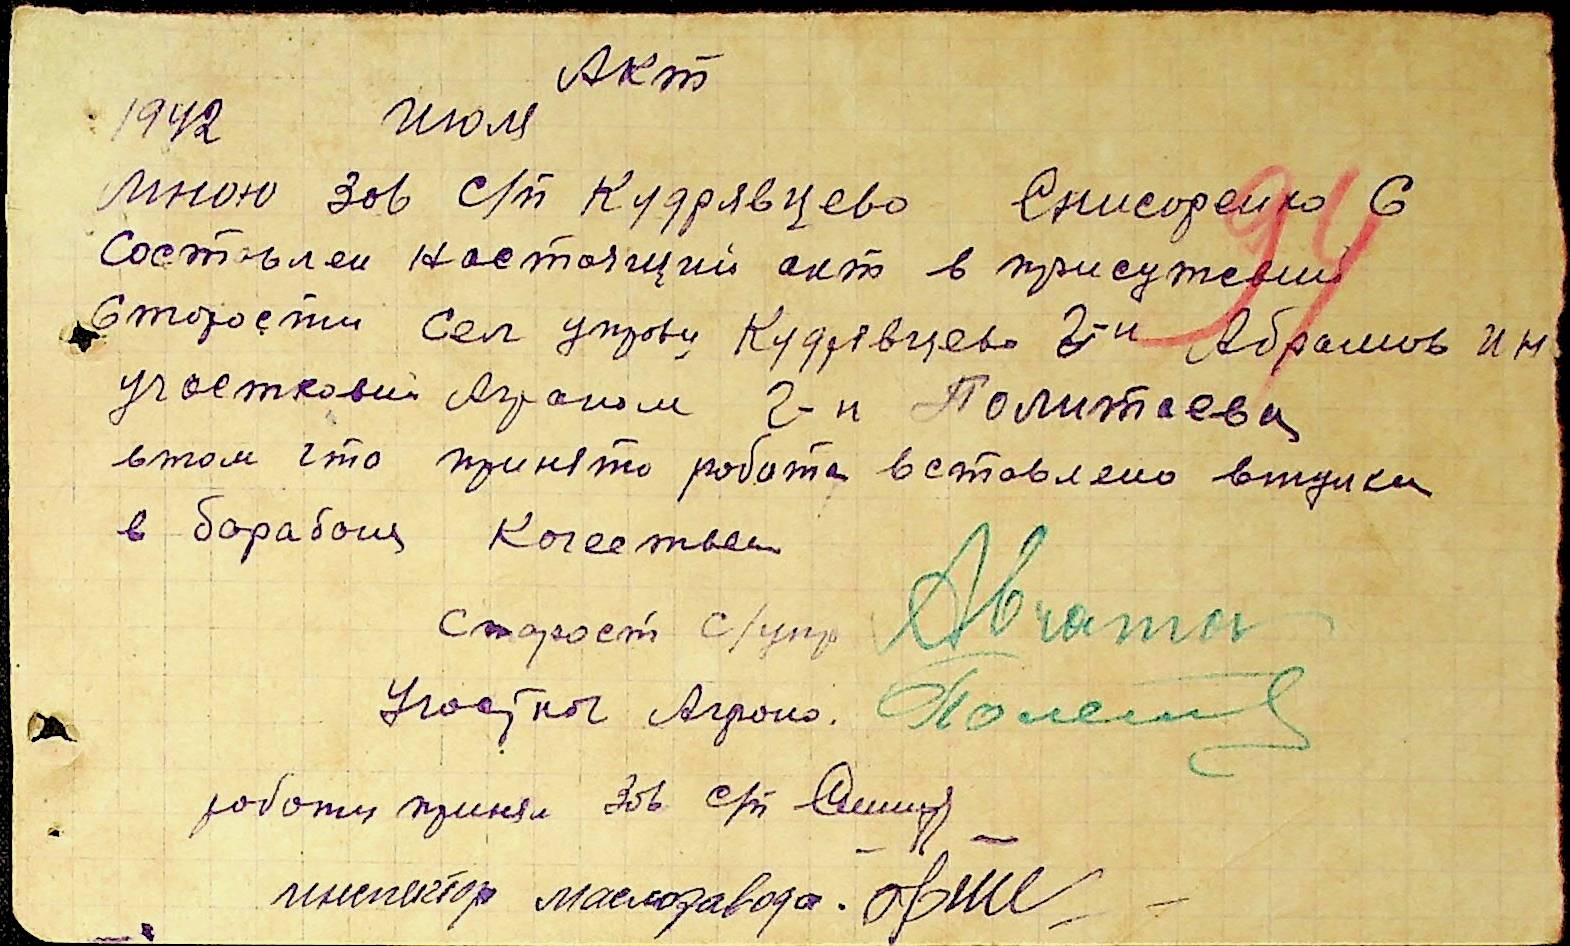 Акт
1942 Июля
Мною Зов с/п Кудрявцево Снисоренко С
Составлен настоящий акт в присутевии
Старости Сел управы Кудрявцево Г-н Абрамов И Н
участковий Аграном г-н Политаева
втом что принято робота вставлено втулки
в барабоня Когествен
Старост с/упр
Участког Агроно.
роботы принял Зов с/п
инспектор маслозавода.
94